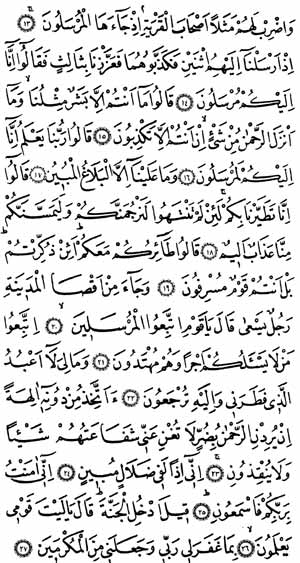 وَاضْرِبْ لَهُمْ مَثَلًا اَصْحَابَ الْقَرْيَةِ اِذْ جَٓاءَهَا الْمُرْسَلُونَۚ ﴿١٣﴾
اِذْ اَرْسَلْنَٓا اِلَيْهِمُ اثْنَيْنِ فَكَذَّبُوهُمَا فَعَزَّزْنَا بِثَالِثٍ فَقَالُٓوا اِنَّٓا
اِلَيْكُمْ مُرْسَلُونَ ﴿١٤﴾ قَالُوا مَٓا اَنْتُمْ اِلَّا بَشَرٌ مِثْلُنَاۙ وَمَٓا
اَنْزَلَ الرَّحْمٰنُ مِنْ شَيْءٍۙ اِنْ اَنْتُمْ اِلَّا تَكْذِبُونَ ﴿١٥﴾ قَالُوا رَبُّنَا يَعْلَمُ اِنَّٓا
اِلَيْكُمْ لَمُرْسَلُونَ ﴿١٦﴾ وَمَا عَلَيْنَٓا اِلَّا الْبَلَاغُ الْمُبِينُ ﴿١٧﴾ قَالُٓوا
اِنَّا تَطَيَّرْنَا بِكُمْۚ لَئِنْ لَمْ تَنْتَهُوا لَنَرْجُمَنَّكُمْ وَلَيَمَسَّنَّكُمْ
مِنَّا عَذَابٌ اَلِيمٌ ﴿١٨﴾ قَالُوا طَٓائِرُكُمْ مَعَكُمْۜ اَئِنْ ذُكِّرْتُمْۜ
بَلْ اَنْتُمْ قَوْمٌ مُسْرِفُونَ ﴿١٩﴾ وَجَٓاءَ مِنْ اَقْصَا الْمَدِينَةِ
رَجُلٌ يَسْعٰى قَالَ يَا قَوْمِ اتَّبِعُوا الْمُرْسَلِينَۙ ﴿٢٠﴾ اِتَّبِعُوا
مَنْ لَا يَسْـَٔلُكُمْ اَجْرًا وَهُمْ مُهْتَدُونَ ﴿٢١﴾ وَمَا لِيَ لَٓا اَعْبُدُ
الَّذِي فَطَرَنِي وَاِلَيْهِ تُرْجَعُونَ ﴿٢٢﴾ ءَاَتَّخِذُ مِنْ دُونِهِٓ اٰلِهَةً
اِنْ يُرِدْنِ الرَّحْمٰنُ بِضُرٍّ لَا تُغْنِ عَنِّي شَفَاعَتُهُمْ شَيْـًٔا
وَلَا يُنْقِذُونِۚ ﴿٢٣﴾ اِنِّٓي اِذًا لَفِي ضَلَالٍ مُبِينٍ ﴿٢٤﴾ اِنِّٓي اٰمَنْتُ
بِرَبِّكُمْ فَاسْمَعُونِۜ ﴿٢٥﴾ قِيلَ ادْخُلِ الْجَنَّةَۜ قَالَ يَا لَيْتَ قَوْمِي
يَعْلَمُونَۙ ﴿٢٦﴾ بِمَا غَفَرَ لِي رَبِّي وَجَعَلَنِي مِنَ الْمُكْرَمِينَ ﴿٢٧﴾